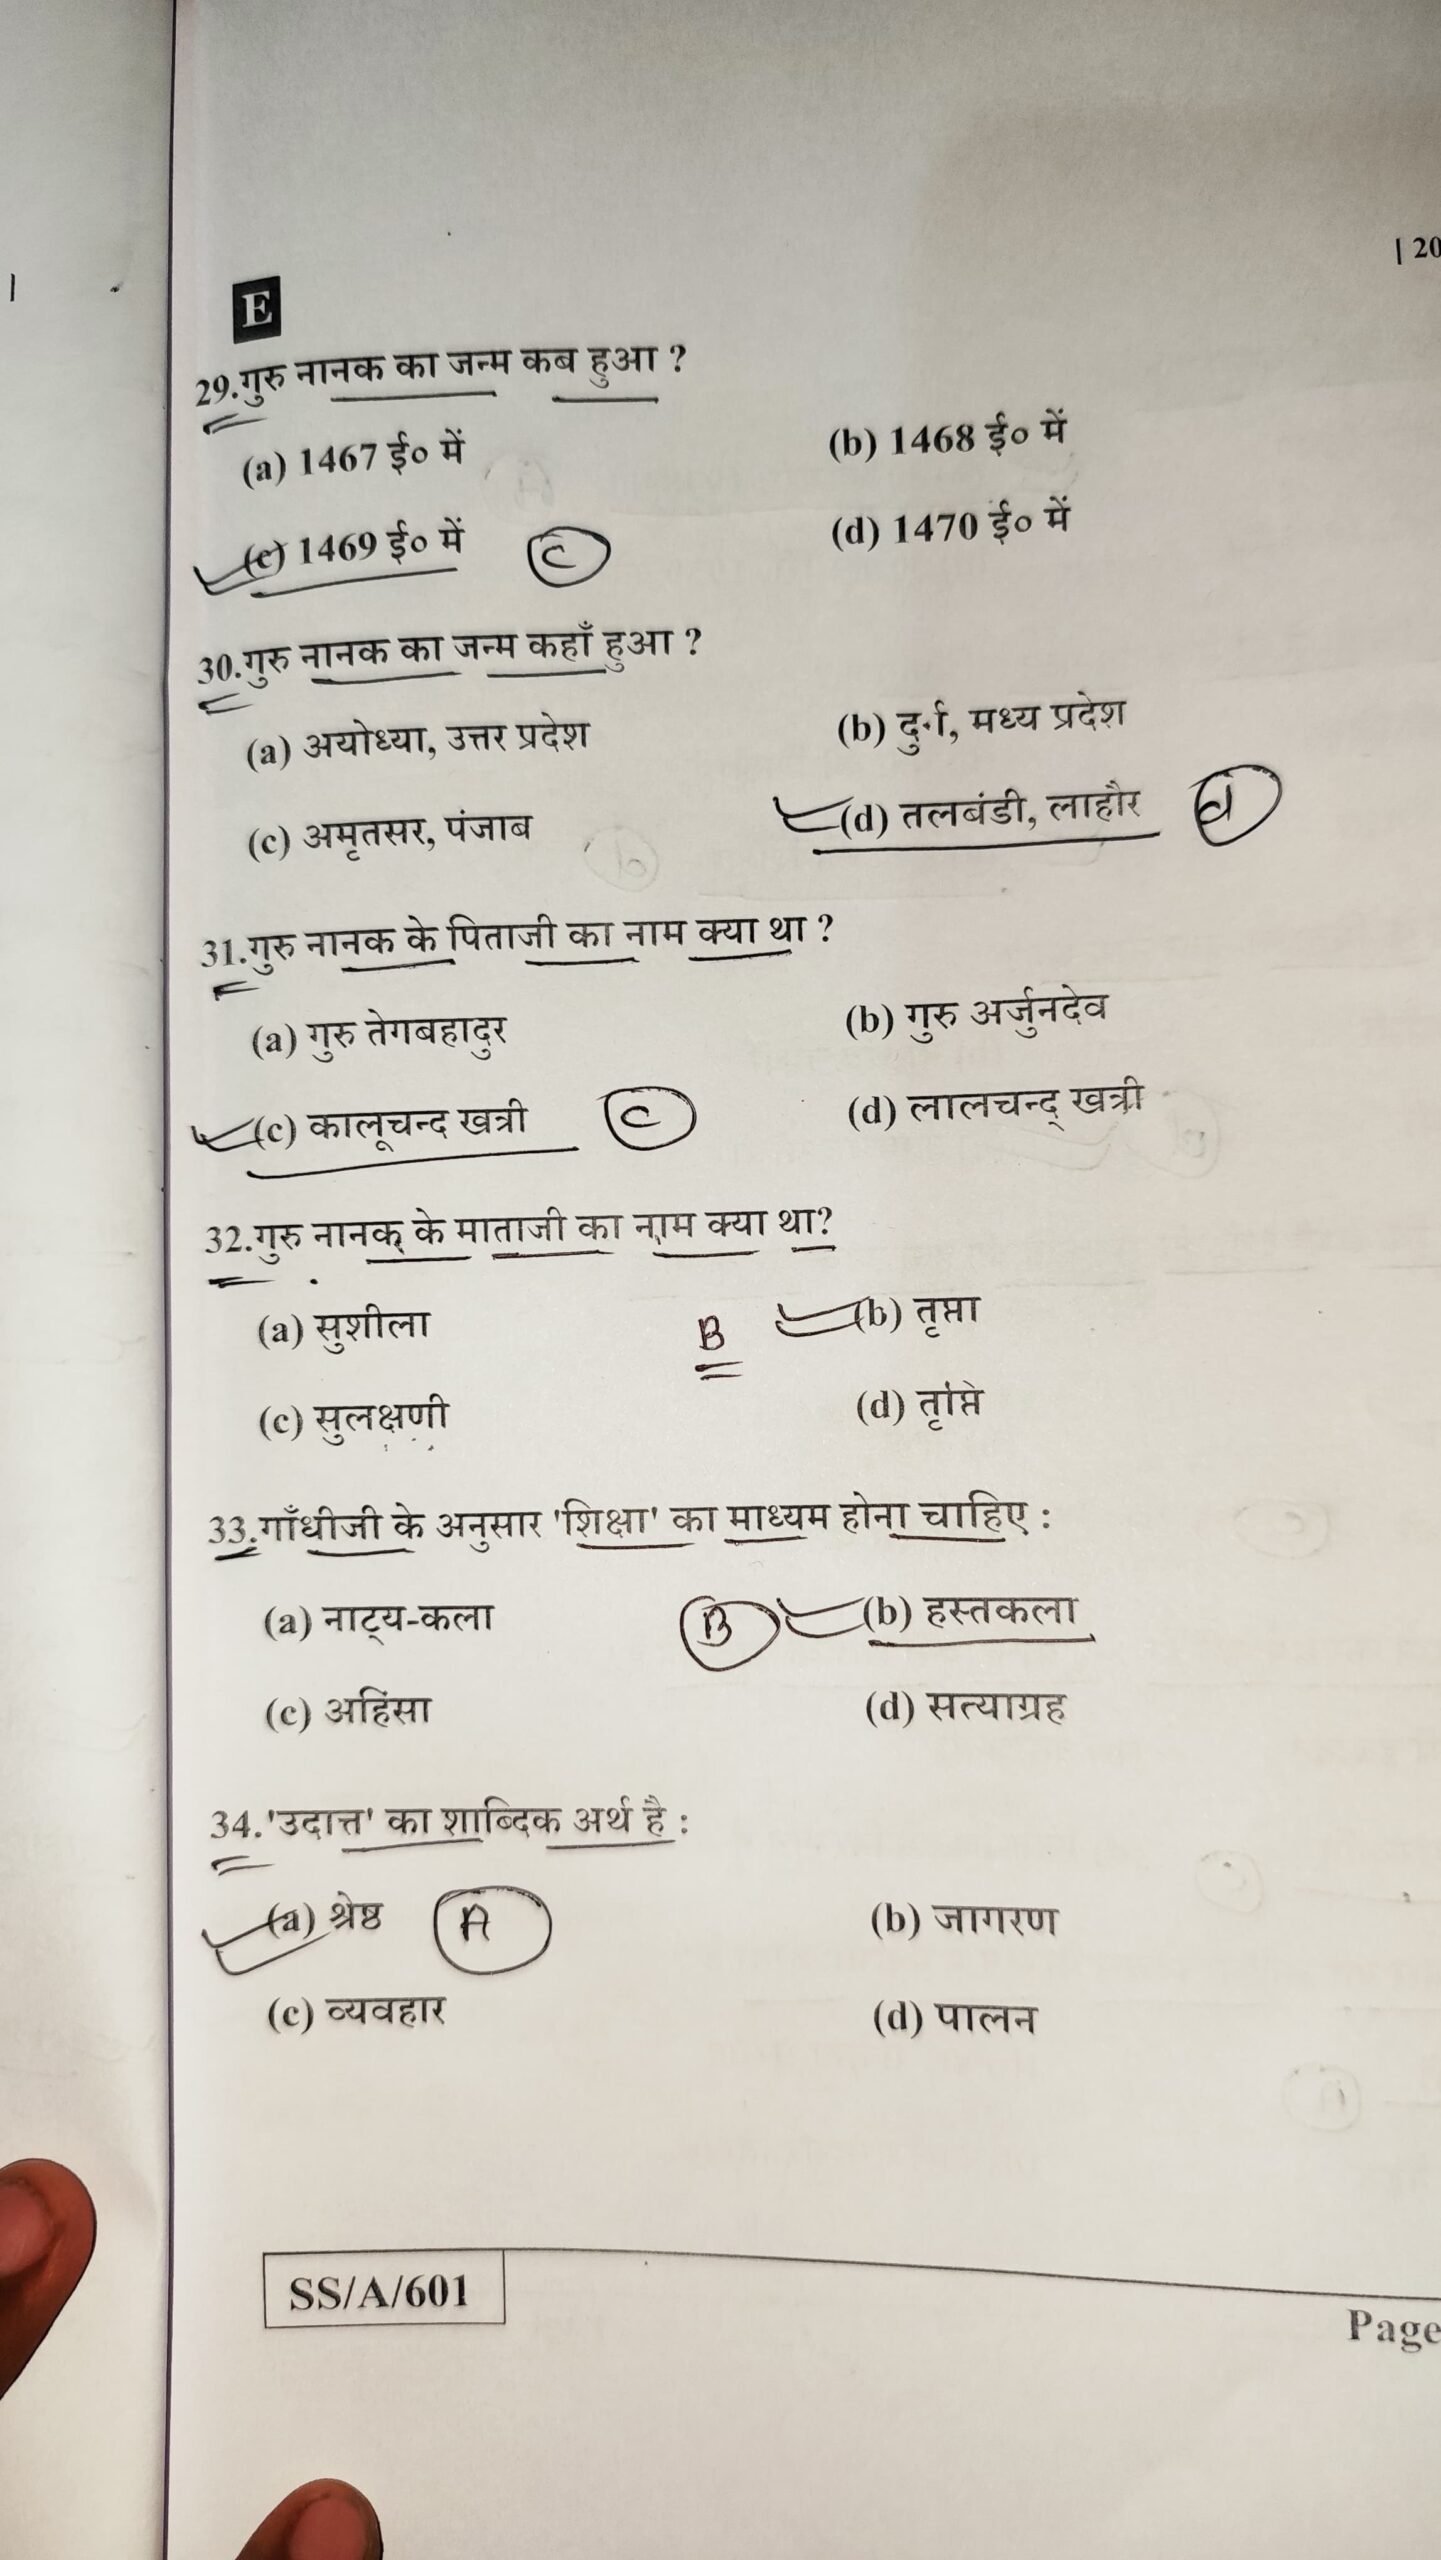 | 20
E
29.गुरु नानक का जन्म कब हुआ ?
(a) 1467 ई० में (b) 1468 ई० में
(c) 1469 ई० में C (d) 1470 ई० में
30.गुरु नानक का जन्म कहाँ हुआ ?
(a) अयोध्या, उत्तर प्रदेश (b) मध्य प्रदेश
(c) अमृतसर, पंजाब (d) तलबंडी, लाहौर d
31.गुरु नानक के पिताजी का नाम क्या था ?
(a) गुरु तेगबहादुर (b) गुरु अर्जुनदेव
(c) कालूचन्द खत्री C (d) लालचन्द् खत्री
32.गुरु नानक के माताजी का नाम क्या था?
(a) सुशीला B (b) तृप्ता
(c) सुलक्षणी (d) तृप्ति
33.गाँधीजी के अनुसार 'शिक्षा' का माध्यम होना चाहिए :
(a) नाट्य-कला B (b) हस्तकला
(c) अहिंसा (d) सत्याग्रह
34.'उदात्त' का शाब्दिक अर्थ है :
(a) श्रेष्ठ A (b) जागरण
(c) व्यवहार (d) पालन
SS/A/601
Page